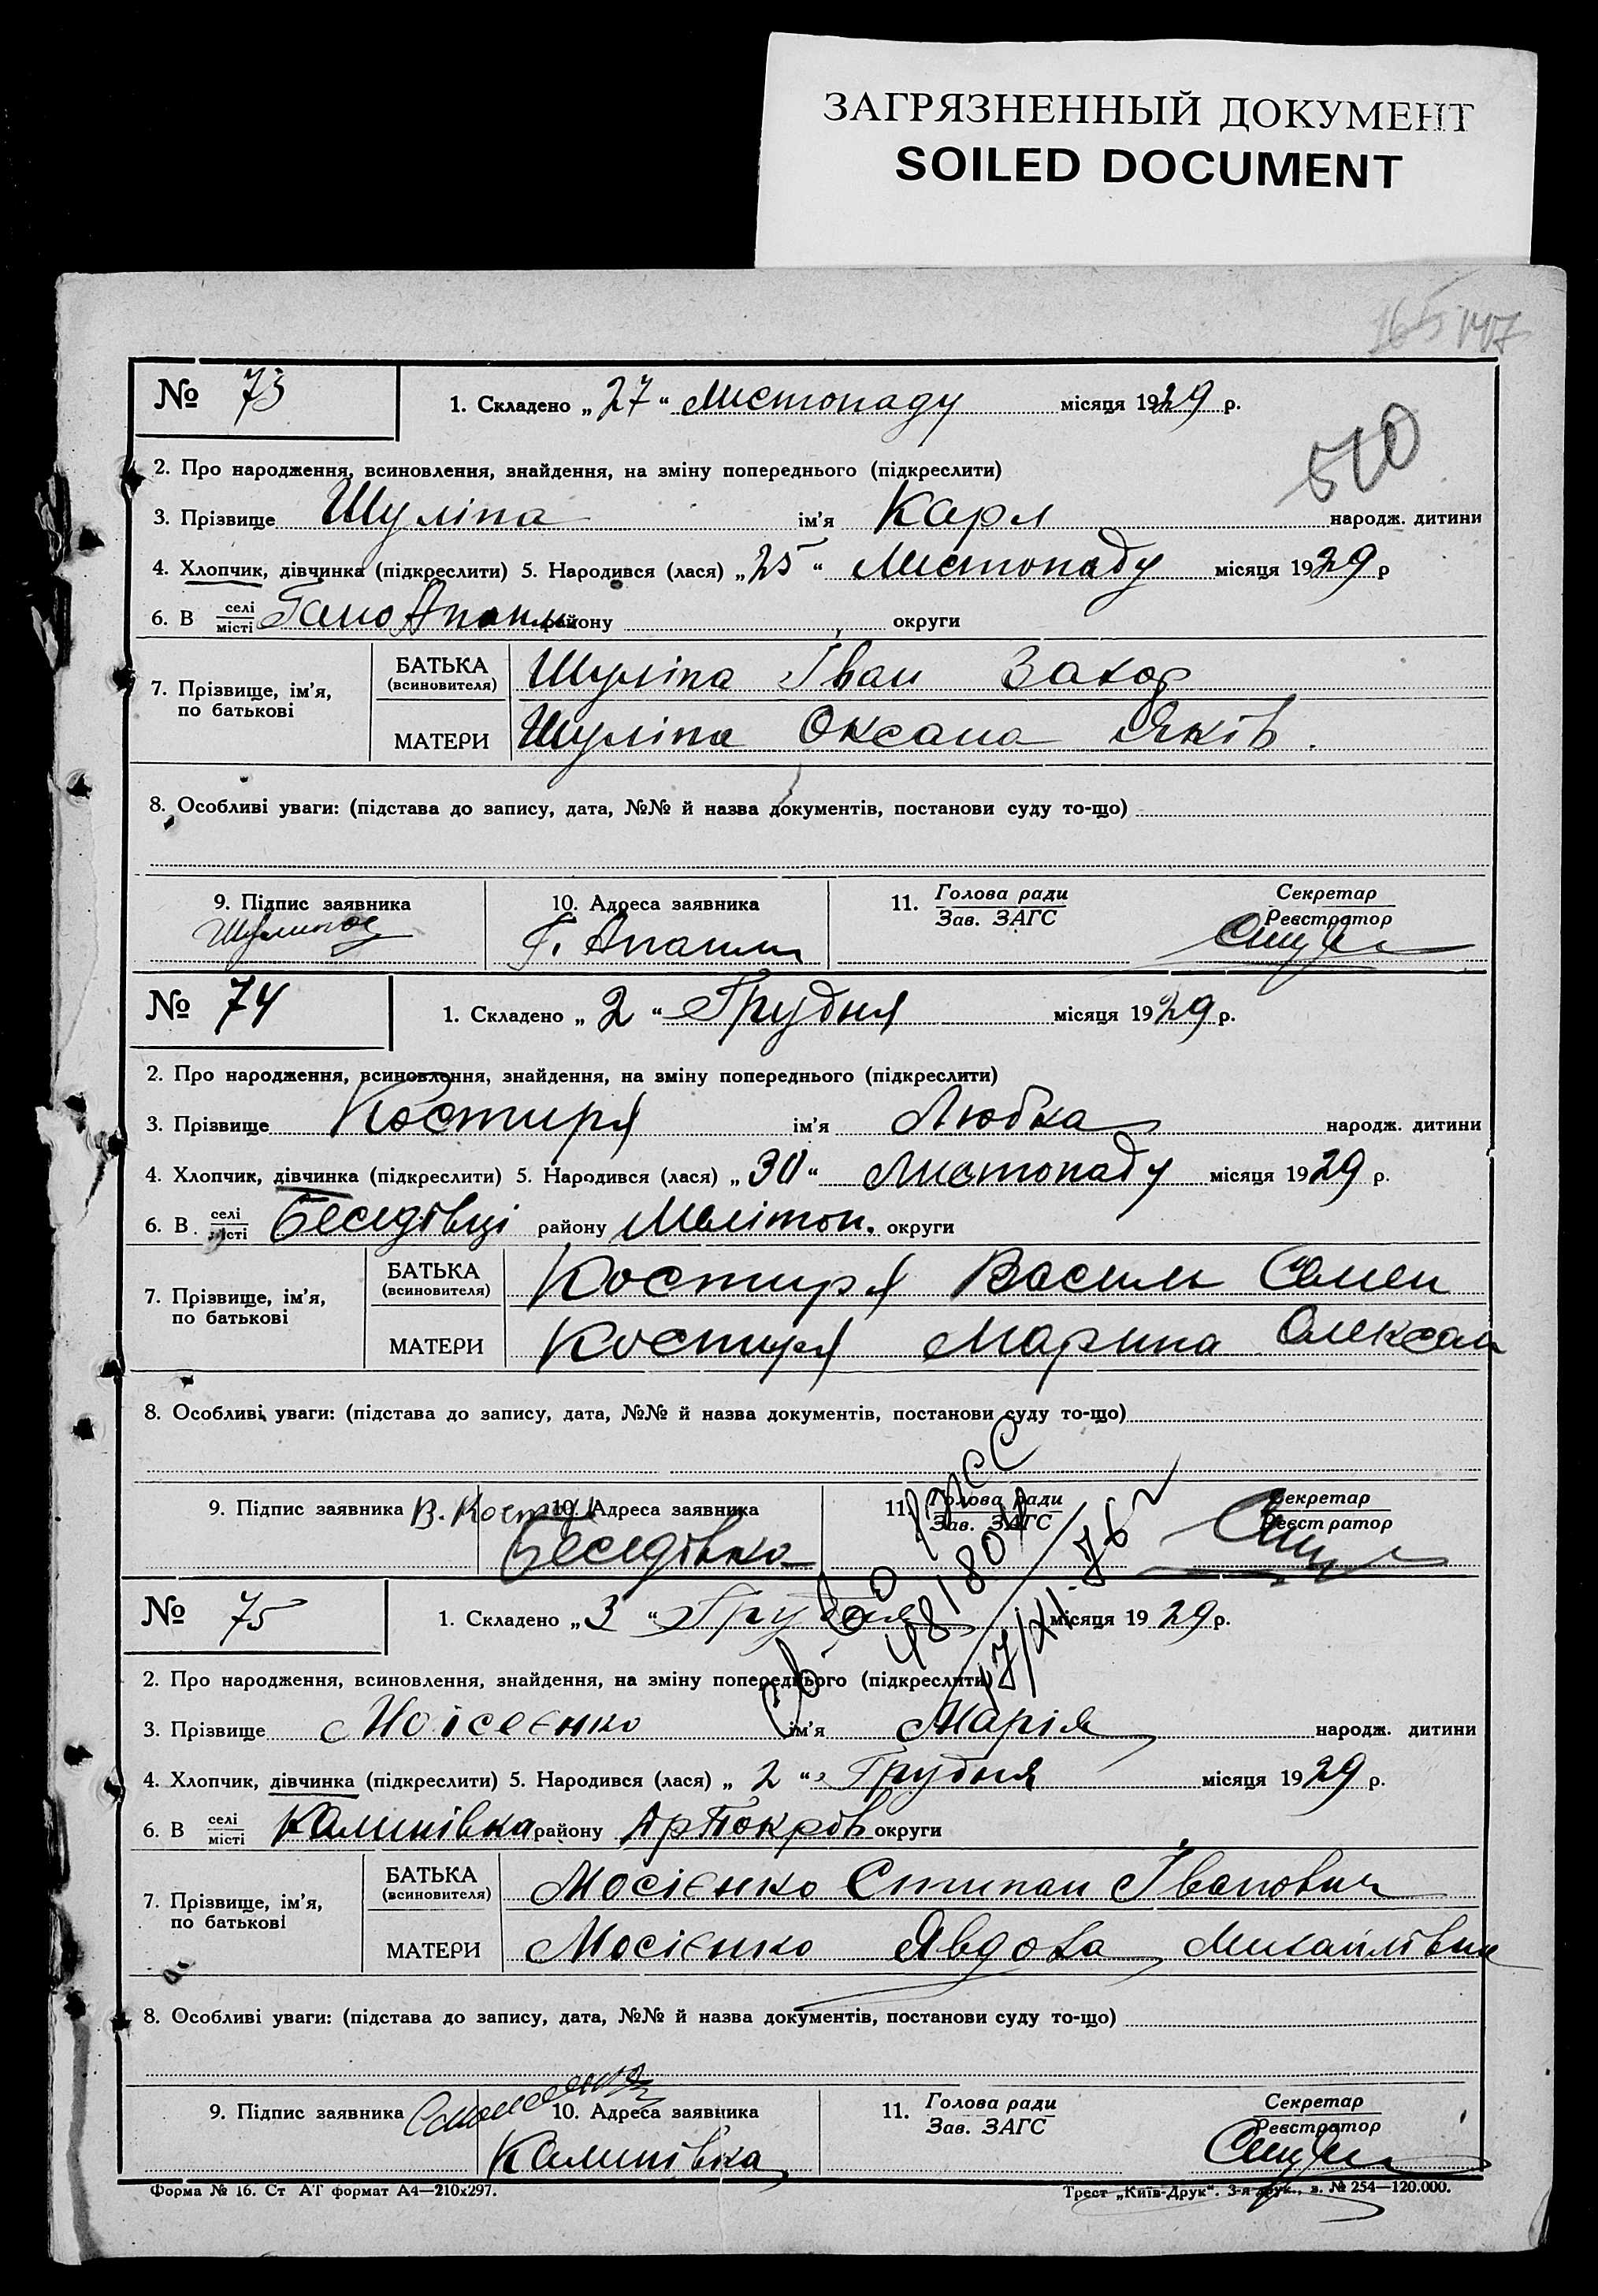 ЗАГРЯЗНЕННЫЙ ДОКУМЕНТ
SOILED DOCUMENT
165 147
№ 73
1. Складено „27“ Листопаду місяця 1929 р.
510
2. Про народження, всиновлення, знайдення, на зміну попереднього (підкреслити)
3. Прізвище Шуліпа ім'я Карл народж. дитини
4. Хлопчик, дівчинка (підкреслити) 5. Народився (лася) „25“ Листопаду місяця 1929 р
6. В селі місті району округи
7. Прізвище, ім'я, по батькові
БАТЬКА (всиновителя) Шуліпа Іван Захар
МАТЕРИ Шуліпа Оксана Яків.
8. Особливі уваги: (підстава до запису, дата, №№ й назва документів, постанови суду то-що)
9. Підпис заявника 10. Адреса заявника 11. Голова ради Зав. ЗАГС Секретар Реєстратор
№ 74
1. Складено „2“ Грудня місяця 1929 р.
2. Про народження, всиновлення, знайдення, на зміну попереднього (підкреслити)
3. Прізвище Костиря ім'я Любка народж. дитини
4. Хлопчик, дівчинка (підкреслити) 5. Народився (лася) „30“ Листопаду місяця 1929 р.
6. В селі місті Беседівці району Мелітоп. округи
7. Прізвище, ім'я, по батькові
БАТЬКА (всиновителя) Костиря Василь Семен
МАТЕРИ Костиря Марина Олексан
8. Особливі уваги: (підстава до запису, дата, №№ й назва документів, постанови суду то-що)
9. Підпис заявника В. Кости 10. Адреса заявника 11. Голова ради Зав. ЗАГС Секретар Реєстратор
Беседівка
№ 75
1. Складено „3“ Грудня місяця 1929 р.
2. Про народження, всиновлення, знайдення, на зміну попереднього (підкреслити)
3. Прізвище Моісеєнко ім'я Марія народж. дитини
4. Хлопчик, дівчинка (підкреслити) 5. Народився (лася) „2“ Грудня місяця 1929 р.
6. В селі місті Калинівка району округи
7. Прізвище, ім'я, по батькові
БАТЬКА (всиновителя) Мосієнко Степан Іванович
МАТЕРИ Мосієнко Явдоха Михайлівна
8. Особливі уваги: (підстава до запису, дата, №№ й назва документів, постанови суду то-що)
9. Підпис заявника 10. Адреса заявника 11. Голова ради Зав. ЗАГС Секретар Реєстратор
Калинівка
Форма № 16. Ст АТ формат А4—210х297.
Трест „Київ-Друк“. 3-я друк., з. № 254—120.000.